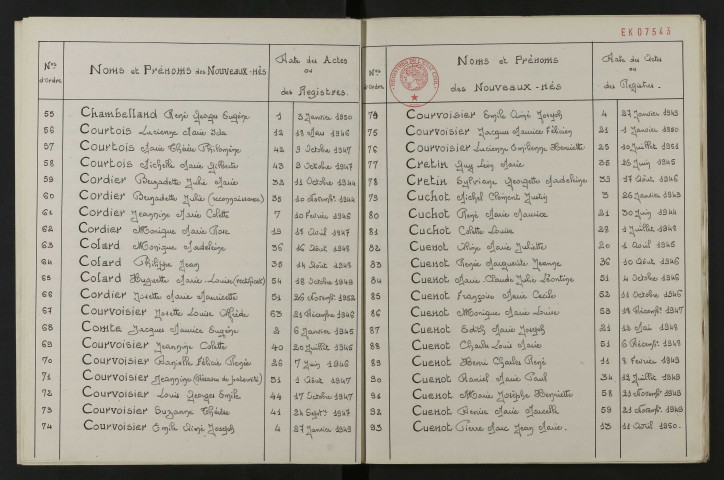 EK07543
Nos d'ordre
Noms et Prénoms des Nouveaux-nés
Date des Actes
ou
des Registres.
55 Chambelland René Georges Eugène 1 3 Janvier 1950
56 Courtois Lucienne Marie Ida 12 18 Mars 1946
57 Courtois Marie Thérèse Philomène 42 9 Octobre 1947
58 Courtois Michelle Marie Gilberte 43 9 Octobre 1947
59 Cordier Bernadette Julie Marie 32 11 Octobre 1944
60 Cordier Bernadette Julie (reconnaissance) 35 10 Novemb. 1944
61 Cordier Jeannine Marie Colette 7 10 Février 1946
62 Cordier Monique Marie Rose 19 18 Avril 1947
63 Colard Monique Madeleine 36 16 Août 1948
64 Colard Philippe Jean 35 14 Août 1948
65 Colard Huguette Marie-Louise (rectificat) 54 18 Octobre 1949
66 Cordier Josette Marie Mauricette 51 26 Novemb. 1952
67 Courvoisier Josette Louise 63 21 Décembre 1946
68 Comte Jacques Maurice Eugène 2 6 Janvier 1945
69 Courvoisier Jeannine Colette 40 20 Juillet 1946
70 Courvoisier Danielle Félicie Renée 26 7 Juin 1946
71 Courvoisier Jeannine 31 1 Août 1947
72 Courvoisier Louis Georges Emile 44 17 Octobre 1947
73 Courvoisier Suzanne Thérèse 41 24 Septb. 1947
74 Courvoisier Emile Aimé Joseph 4 27 Janvier 1949
Nos d'ordre
Noms et Prénoms
des Nouveaux-nés
Date des Actes
ou
des Registres.
Courvoisier Emile Aimé Joseph 4 27 Janvier 1949
75 Courvoisier Jacques Maurice Félicien 21 1 Janvier 1950
76 Courvoisier Lucienne Emilienne Henriette 25 10 Juillet 1951
77 Cretin Guy Léon Marie 25 26 Juin 1945
78 Cretin Sylviane Georgette Madeleine 39 17 Août 1946
79 Cuchot Michel Clément Justin 3 26 Janvier 1943
80 Cuchot René Marie Maurice 21 30 Juin 1944
81 Cuchot Colette Louise 28 1 Juillet 1948
82 Cuenot Marie Juliette 20 1 Avril 1945
83 Cuenot Renée Marguerite Jeanne 36 10 Août 1946
84 Cuenot Marie Claude Julie Léontine 51 4 Octobre 1946
85 Cuenot Françoise Marie Cécile 52 11 Octobre 1946
86 Cuenot Monique Marie Louise 59 18 Décemb. 1947
87 Cuenot Edith Marie Joseph 21 12 Mai 1948
88 Cuenot Charles Louis Marie 51 6 Décemb. 1948
89 Cuenot Henri Charles René 11 8 Février 1949
90 Cuenot Daniel Marie Paul 34 12 Juillet 1949
91 Cuenot Marie Josèphe Henriette 58 21 Novemb. 1949
92 Cuenot Denise Marie Marcelle 59 21 Novemb. 1949
93 Cuenot Pierre Marc Jean Marie. 13 11 Avril 1950.